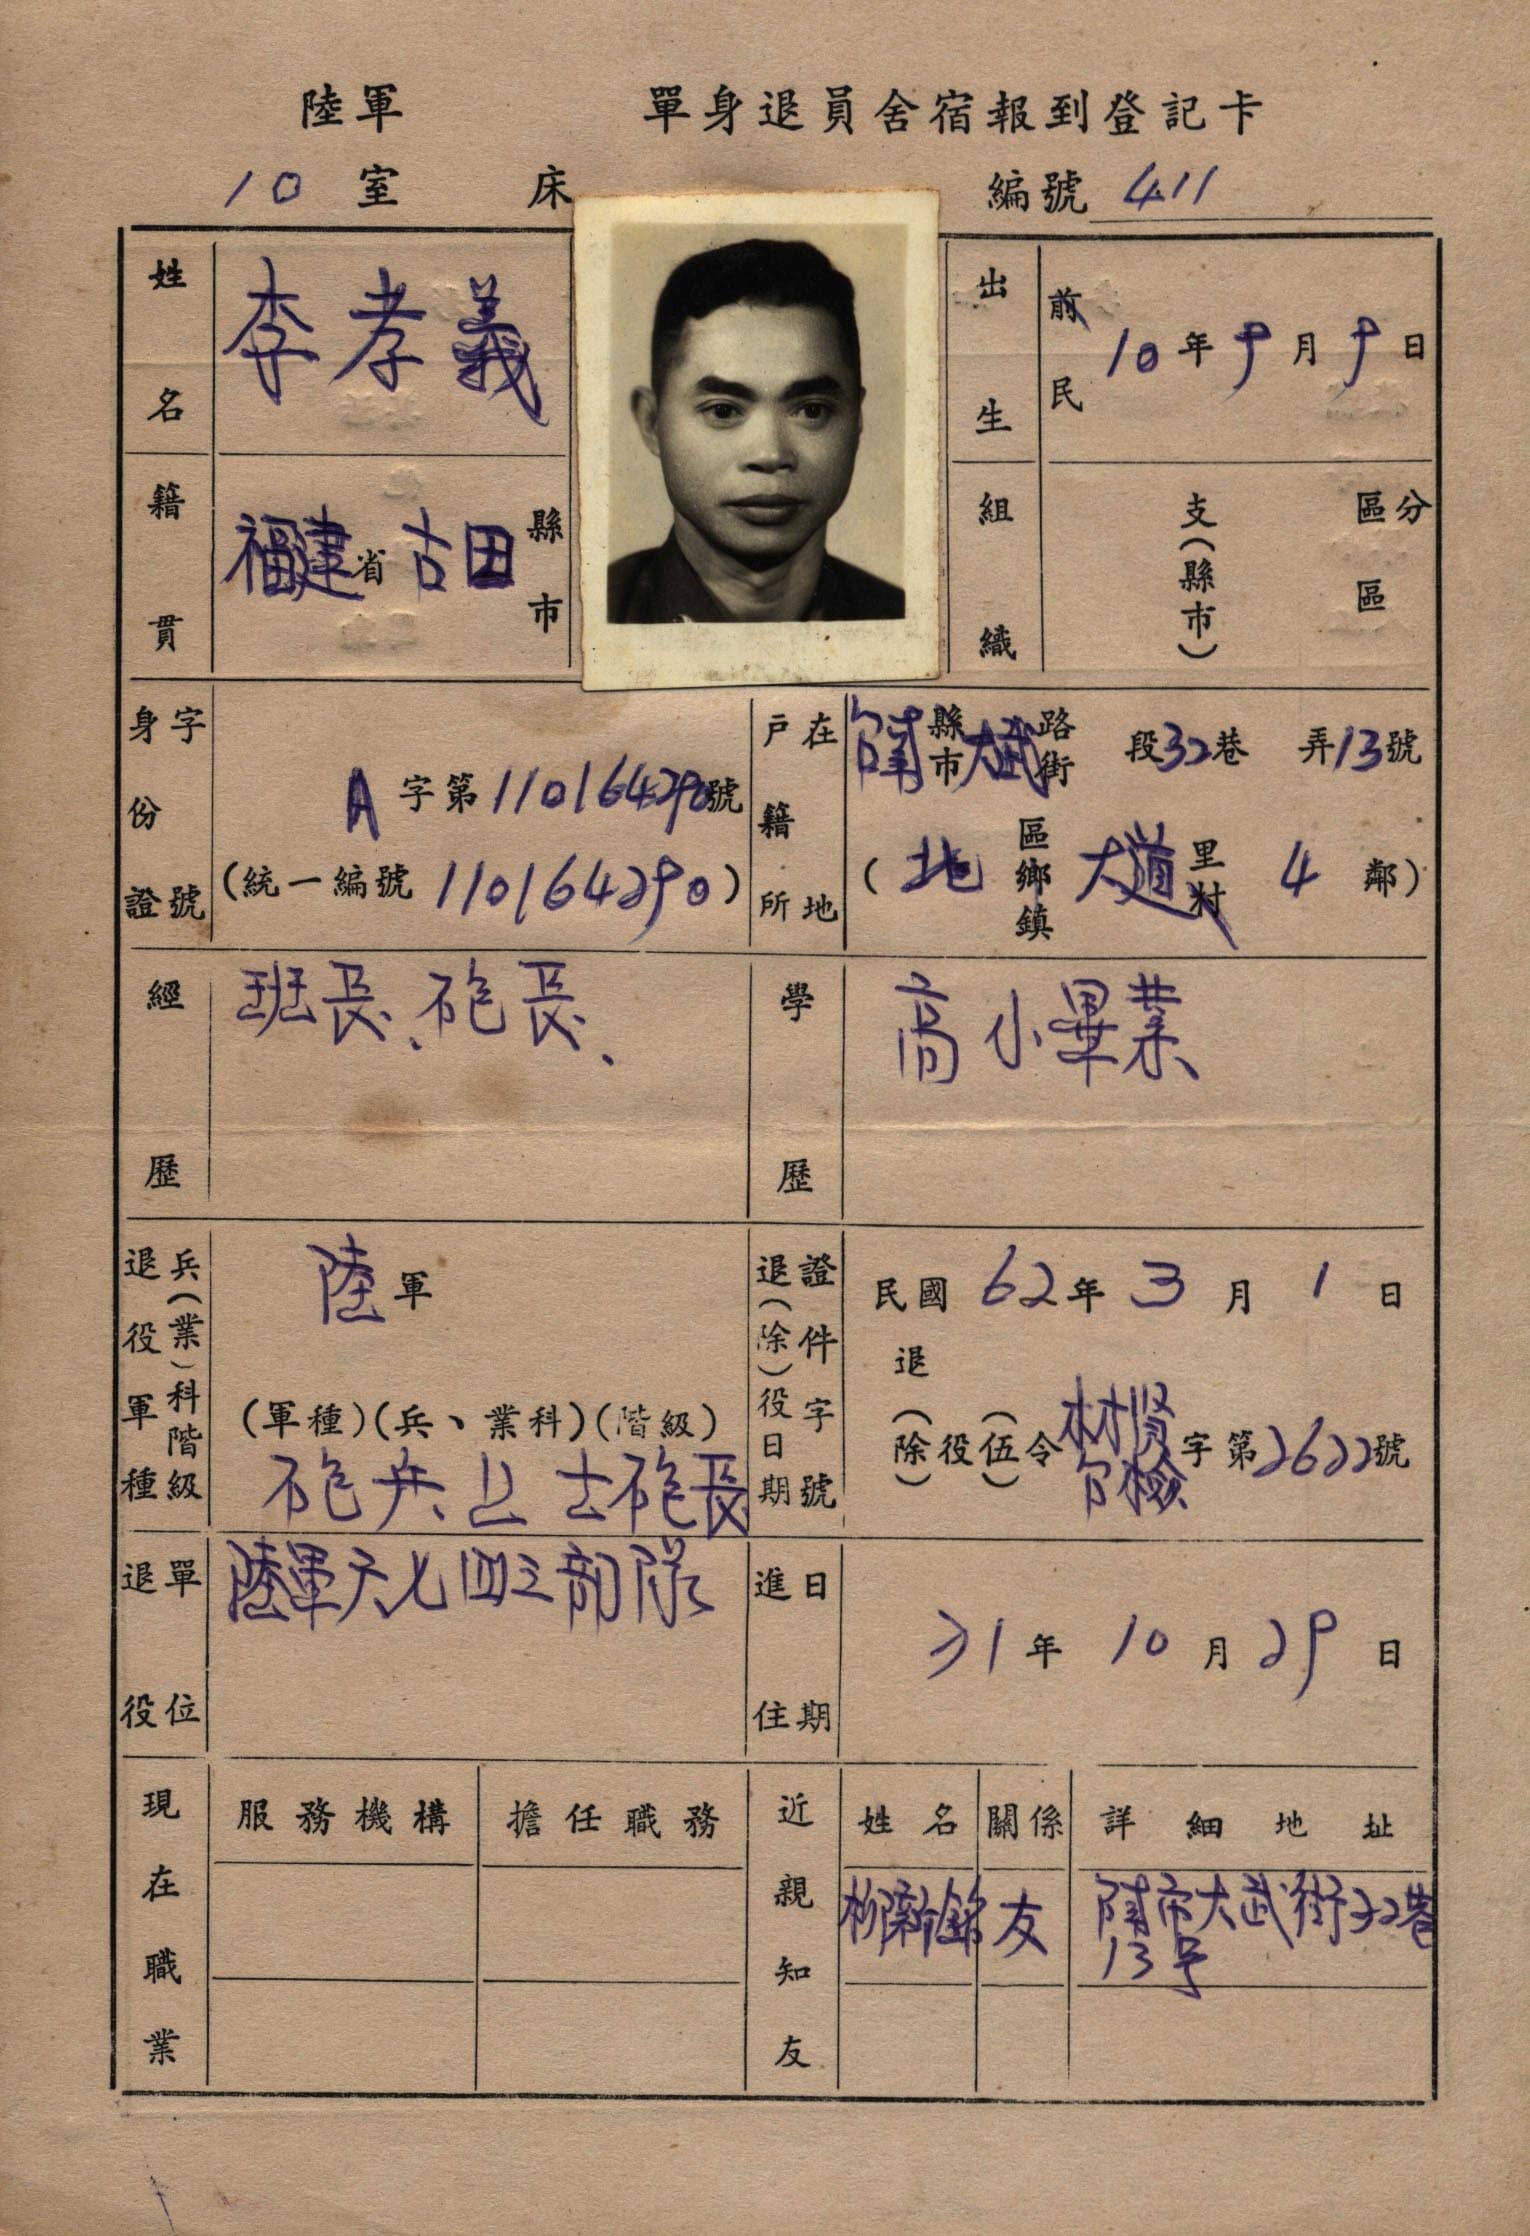 陸軍 單身退員舍宿報到登記卡
10 室 床 編號 411
姓名 李孝義
出生 前民 10年9月9日
籍貫 福建省古田縣市
組織 支(縣市) 區分 區
身份證字號 A字第110164290號
(統一編號 110164290)
戶籍所在地 縣市大武路街 段32巷 弄13號
(北區鄉鎮 大道里村 4鄰)
經歷 班長、砲長、
學歷 高小畢業
退役軍種兵(業)科階級 陸軍
(軍種)(兵、業科)(階級)
砲兵上士砲長
退(除)役日期證件字號 民國62年3月1日
退(除)役(伍)令 字第2622號
退役單位 陸軍 七四三部隊
進住日期 71年10月29日
現在職業 服務機構 擔任職務
近親知友 姓名 關係 詳細地址
柳新銘 友 市大武街32巷
13号